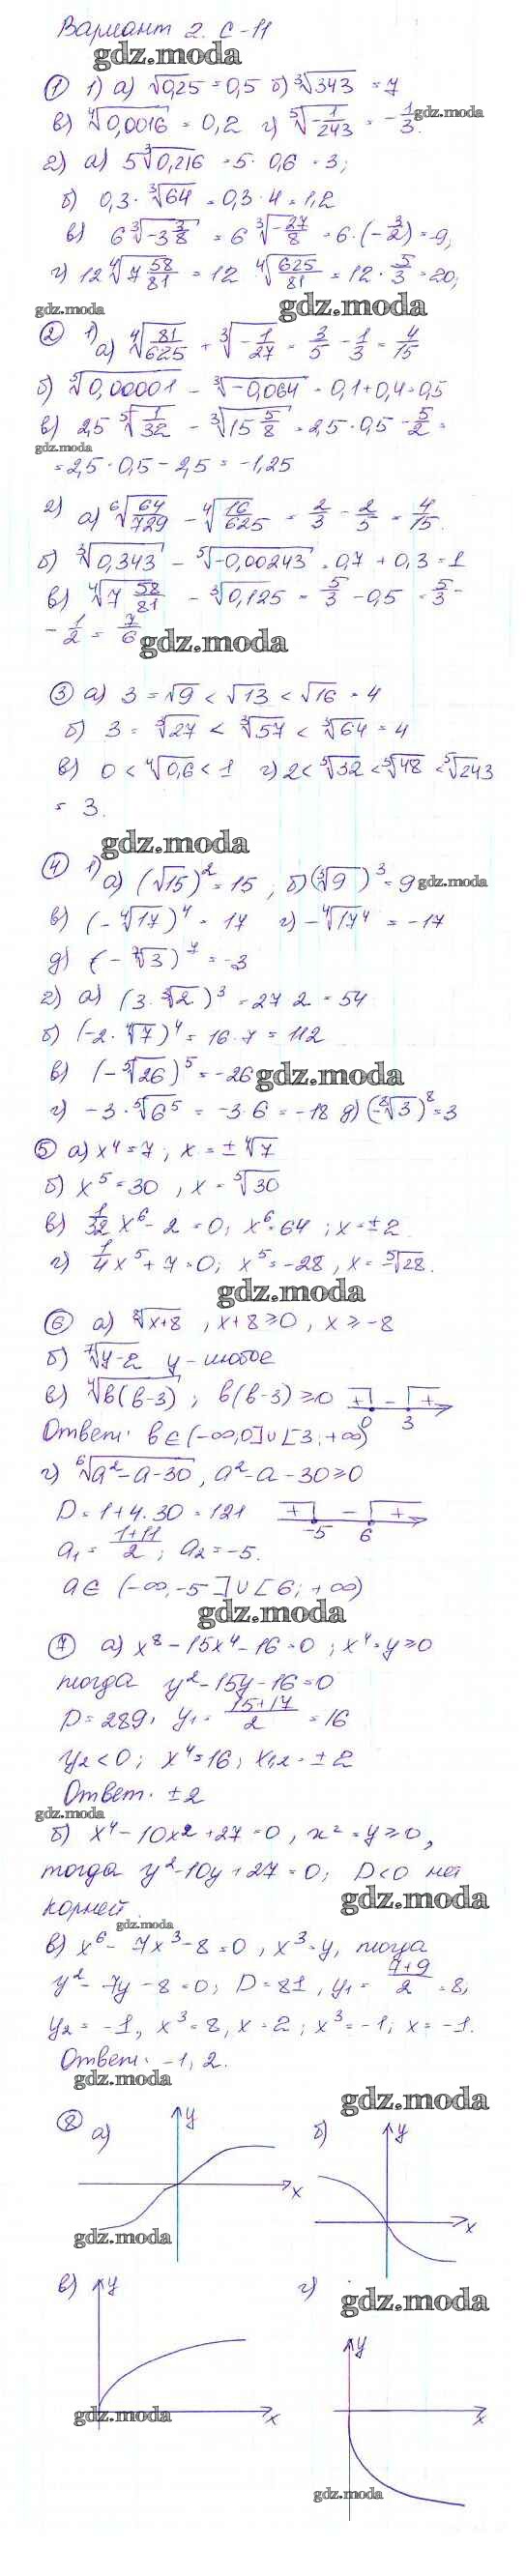 Вариант 2. С-11
gdz.moda
① 1) а) √0,25 = 0,5 б) ³√343 = 7
в) ⁴√0,0016 = 0,2 г) ⁵√-1/243 = -1/3. gdz.moda
2) а) 5³√0,216 = 5 · 0,6 = 3;
б) 0,3 · ³√64 = 0,3 · 4 = 1,2
в) 6 ³√-3 3/8 = 6 ³√-27/8 = 6 · (-3/2) = -9;
г) 12 ⁴√7 58/81 = 12 · ⁴√625/81 = 12 · 5/3 = 20;
gdz.moda gdz.moda
② 1) а) ⁴√81/625 + ³√-1/27 = 3/5 - 1/3 = 4/15
б) ⁵√0,00001 - ³√-0,064 = 0,1 + 0,4 = 0,5
в) 2,5 ⁵√1/32 - ³√15 5/8 = 2,5 · 0,5 - 5/2 =
gdz.moda
= 2,5 · 0,5 - 2,5 = -1,25
2) а) ⁶√64/729 - ⁴√16/625 = 2/3 - 2/5 = 4/15.
б) ³√0,343 - ⁵√-0,00243 = 0,7 + 0,3 = 1
в) ⁴√7 58/81 - ³√0,125 = 5/3 - 0,5 = 5/3 -
- 1/2 = 7/6 gdz.moda
③ а) 3 = √9 < √13 < √16 = 4
б) 3 = ³√27 < ³√57 < ³√64 = 4
в) 0 < ⁴√0,6 < 1 г) 2 < ⁵√32 < ⁵√48 < ⁵√243
= 3.
gdz.moda
④ 1) а) (√15)² = 15, б) (³√9)³ = 9 gdz.moda
в) (-⁴√17)⁴ = 17 г) -⁴√17⁴ = -17
д) (-⁷√3)⁷ = -3
2) а) (3 · ³√2)³ = 27 · 2 = 54
б) (-2 · ⁴√7)⁴ = 16 · 7 = 112
в) (-⁵√26)⁵ = -26 gdz.moda
г) -3 · ⁵√6⁵ = -3 · 6 = -18 д) (-⁸√3)⁸ = 3
⑤ а) x⁴ = 7; x = ±⁴√7
б) x⁵ = 30, x = ⁵√30
в) 1/32 x⁶ - 2 = 0; x⁶ = 64; x = ±2
г) 1/4 x⁵ + 7 = 0; x⁵ = -28, x = -⁵√28.
gdz.moda
⑥ а) ⁸√x+8, x+8 ≥ 0, x ≥ -8
б) ⁷√y-2 y - любое
в) ⁴√b(b-3); b(b-3) ≥ 0 + - + 0 3
Ответ: b ∈ (-∞, 0] ∪ [3, +∞)
г) ⁶√a²-a-30, a² - a - 30 ≥ 0
D = 1 + 4 · 30 = 121 + - + -5 6
a₁ = 1+11/2; a₂ = -5.
a ∈ (-∞, -5] ∪ [6; +∞)
gdz.moda
⑦ а) x⁸ - 15x⁴ - 16 = 0; x⁴ = y ≥ 0
тогда y² - 15y - 16 = 0
D = 289, y₁ = 15+17/2 = 16
y₂ < 0; x⁴ = 16; x₁,₂ = ±2
Ответ. ±2
gdz.moda
б) x⁴ - 10x² + 27 = 0, x² = y ≥ 0,
тогда y² - 10y + 27 = 0; D < 0 нет
gdz.moda
корней.
gdz.moda
в) x⁶ - 7x³ - 8 = 0, x³ = y, тогда
y² - 7y - 8 = 0; D = 81, y₁ = 7+9/2 = 8,
y₂ = -1, x³ = 8, x = 2; x³ = -1; x = -1.
Ответ. -1, 2.
gdz.moda
gdz.moda
⑧ а) y x б) y x
gdz.moda
в) y x г) y x
gdz.moda
gdz.moda
gdz.moda